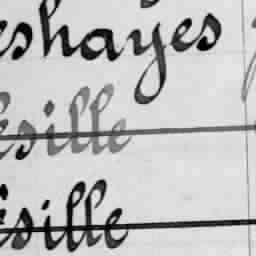 eshayes
ésille
ésille